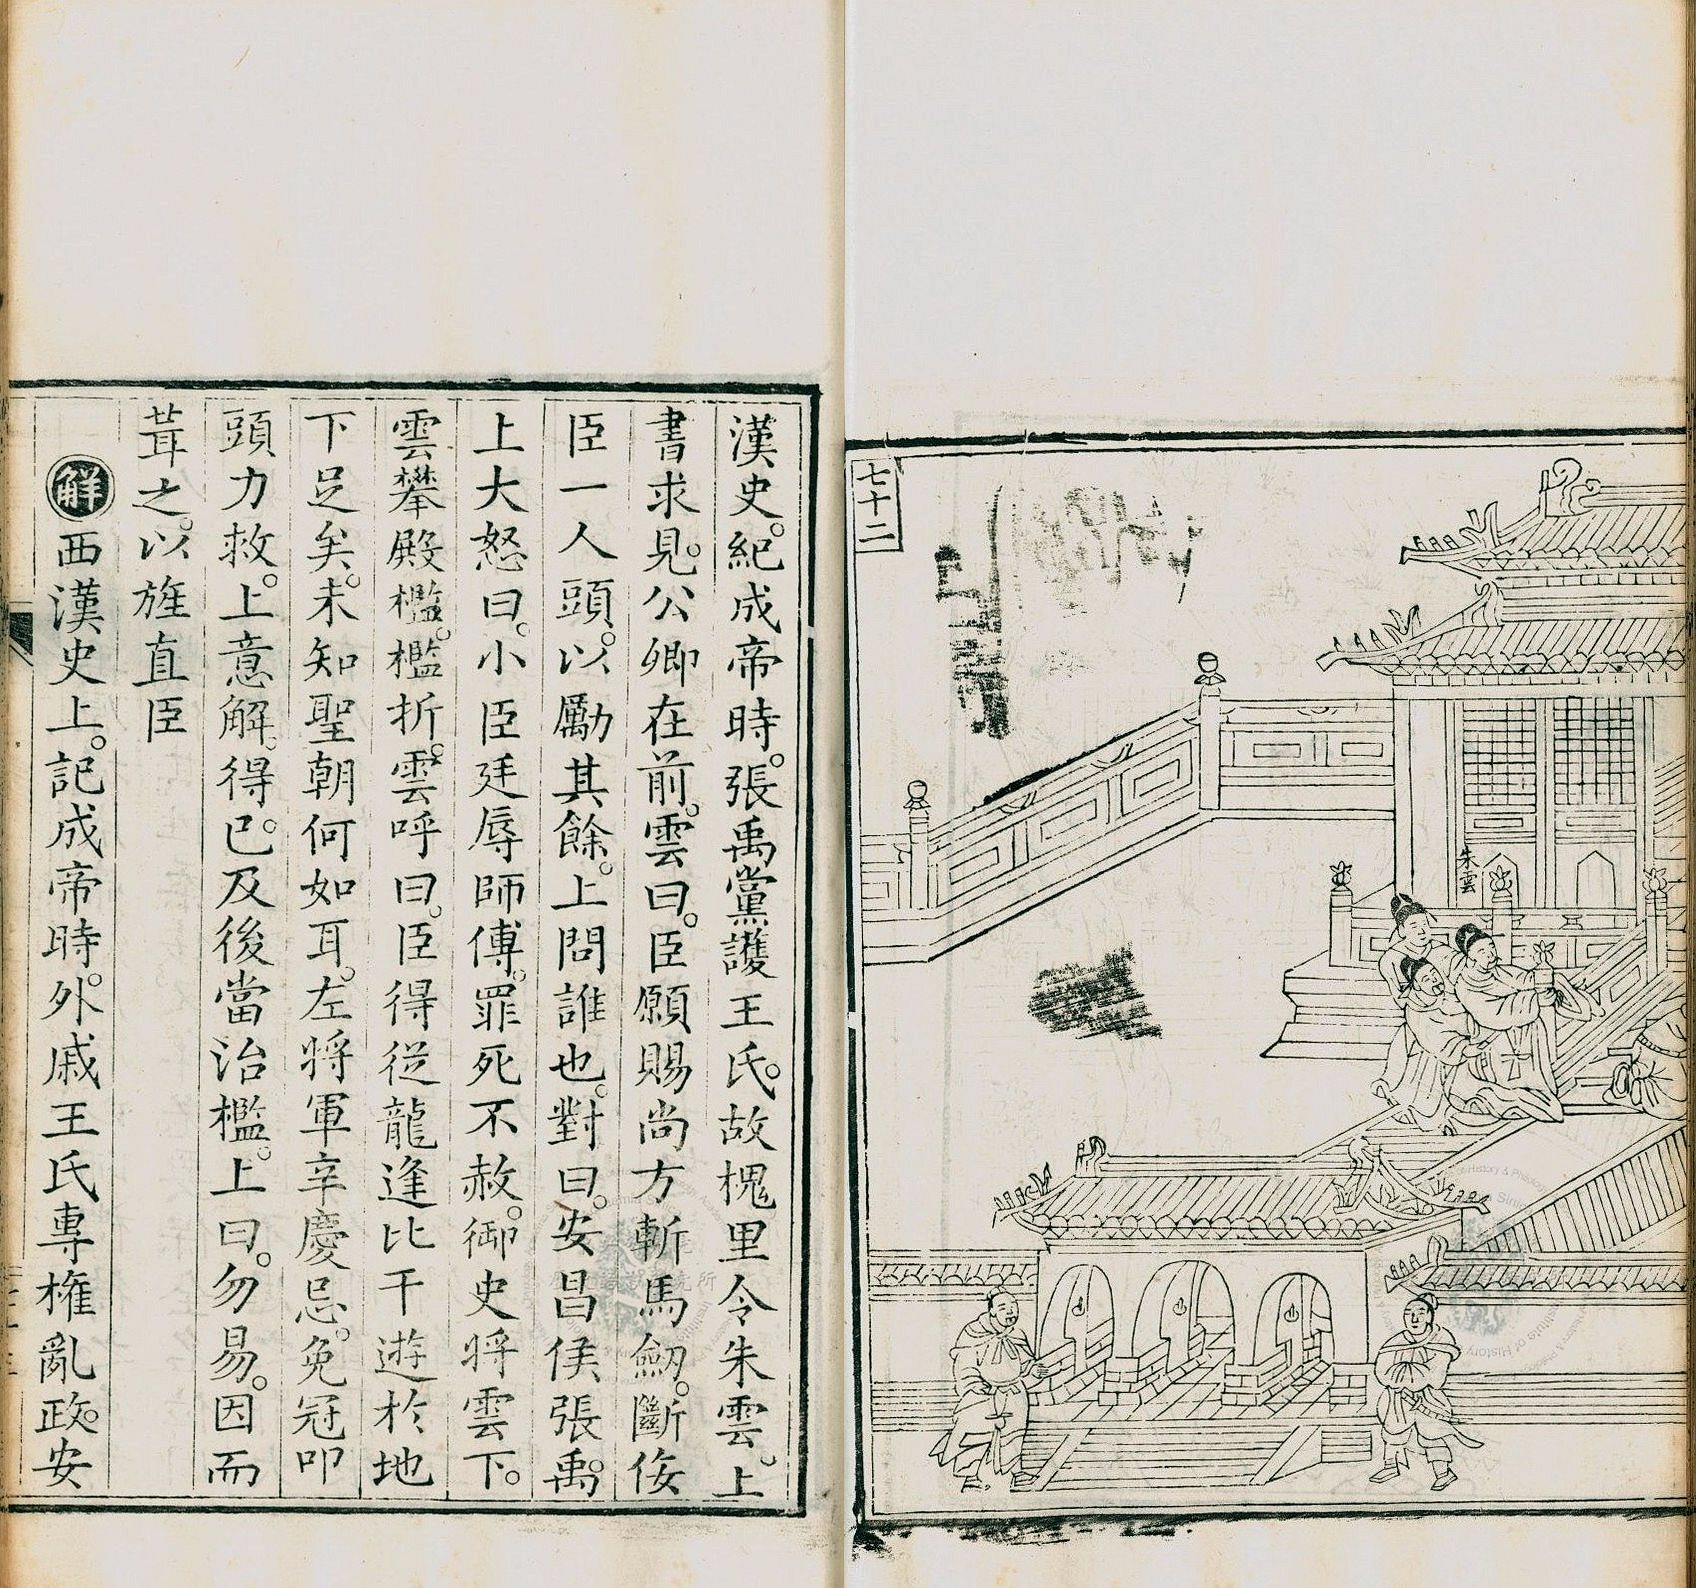 七十二
朱雲
漢史。紀成帝時。張禹黨護王氏。故槐里令朱雲。上
書求見。公卿在前。雲曰。臣願賜尚方斬馬劒。斷佞
臣一人頭。以勵其餘。上問誰也。對曰。安昌侯張禹。
上大怒曰。小臣廷辱師傅。罪死不赦。御史將雲下。
雲攀殿檻。檻折。雲呼曰。臣得從龍逢比干遊於地
下足矣。未知聖朝何如耳。左將軍辛慶忌。免冠叩
頭力救。上意解。得已。及後當治檻。上曰。勿易。因而
葺之。以旌直臣
解西漢史上。記成帝時。外戚王氏專權亂政。安